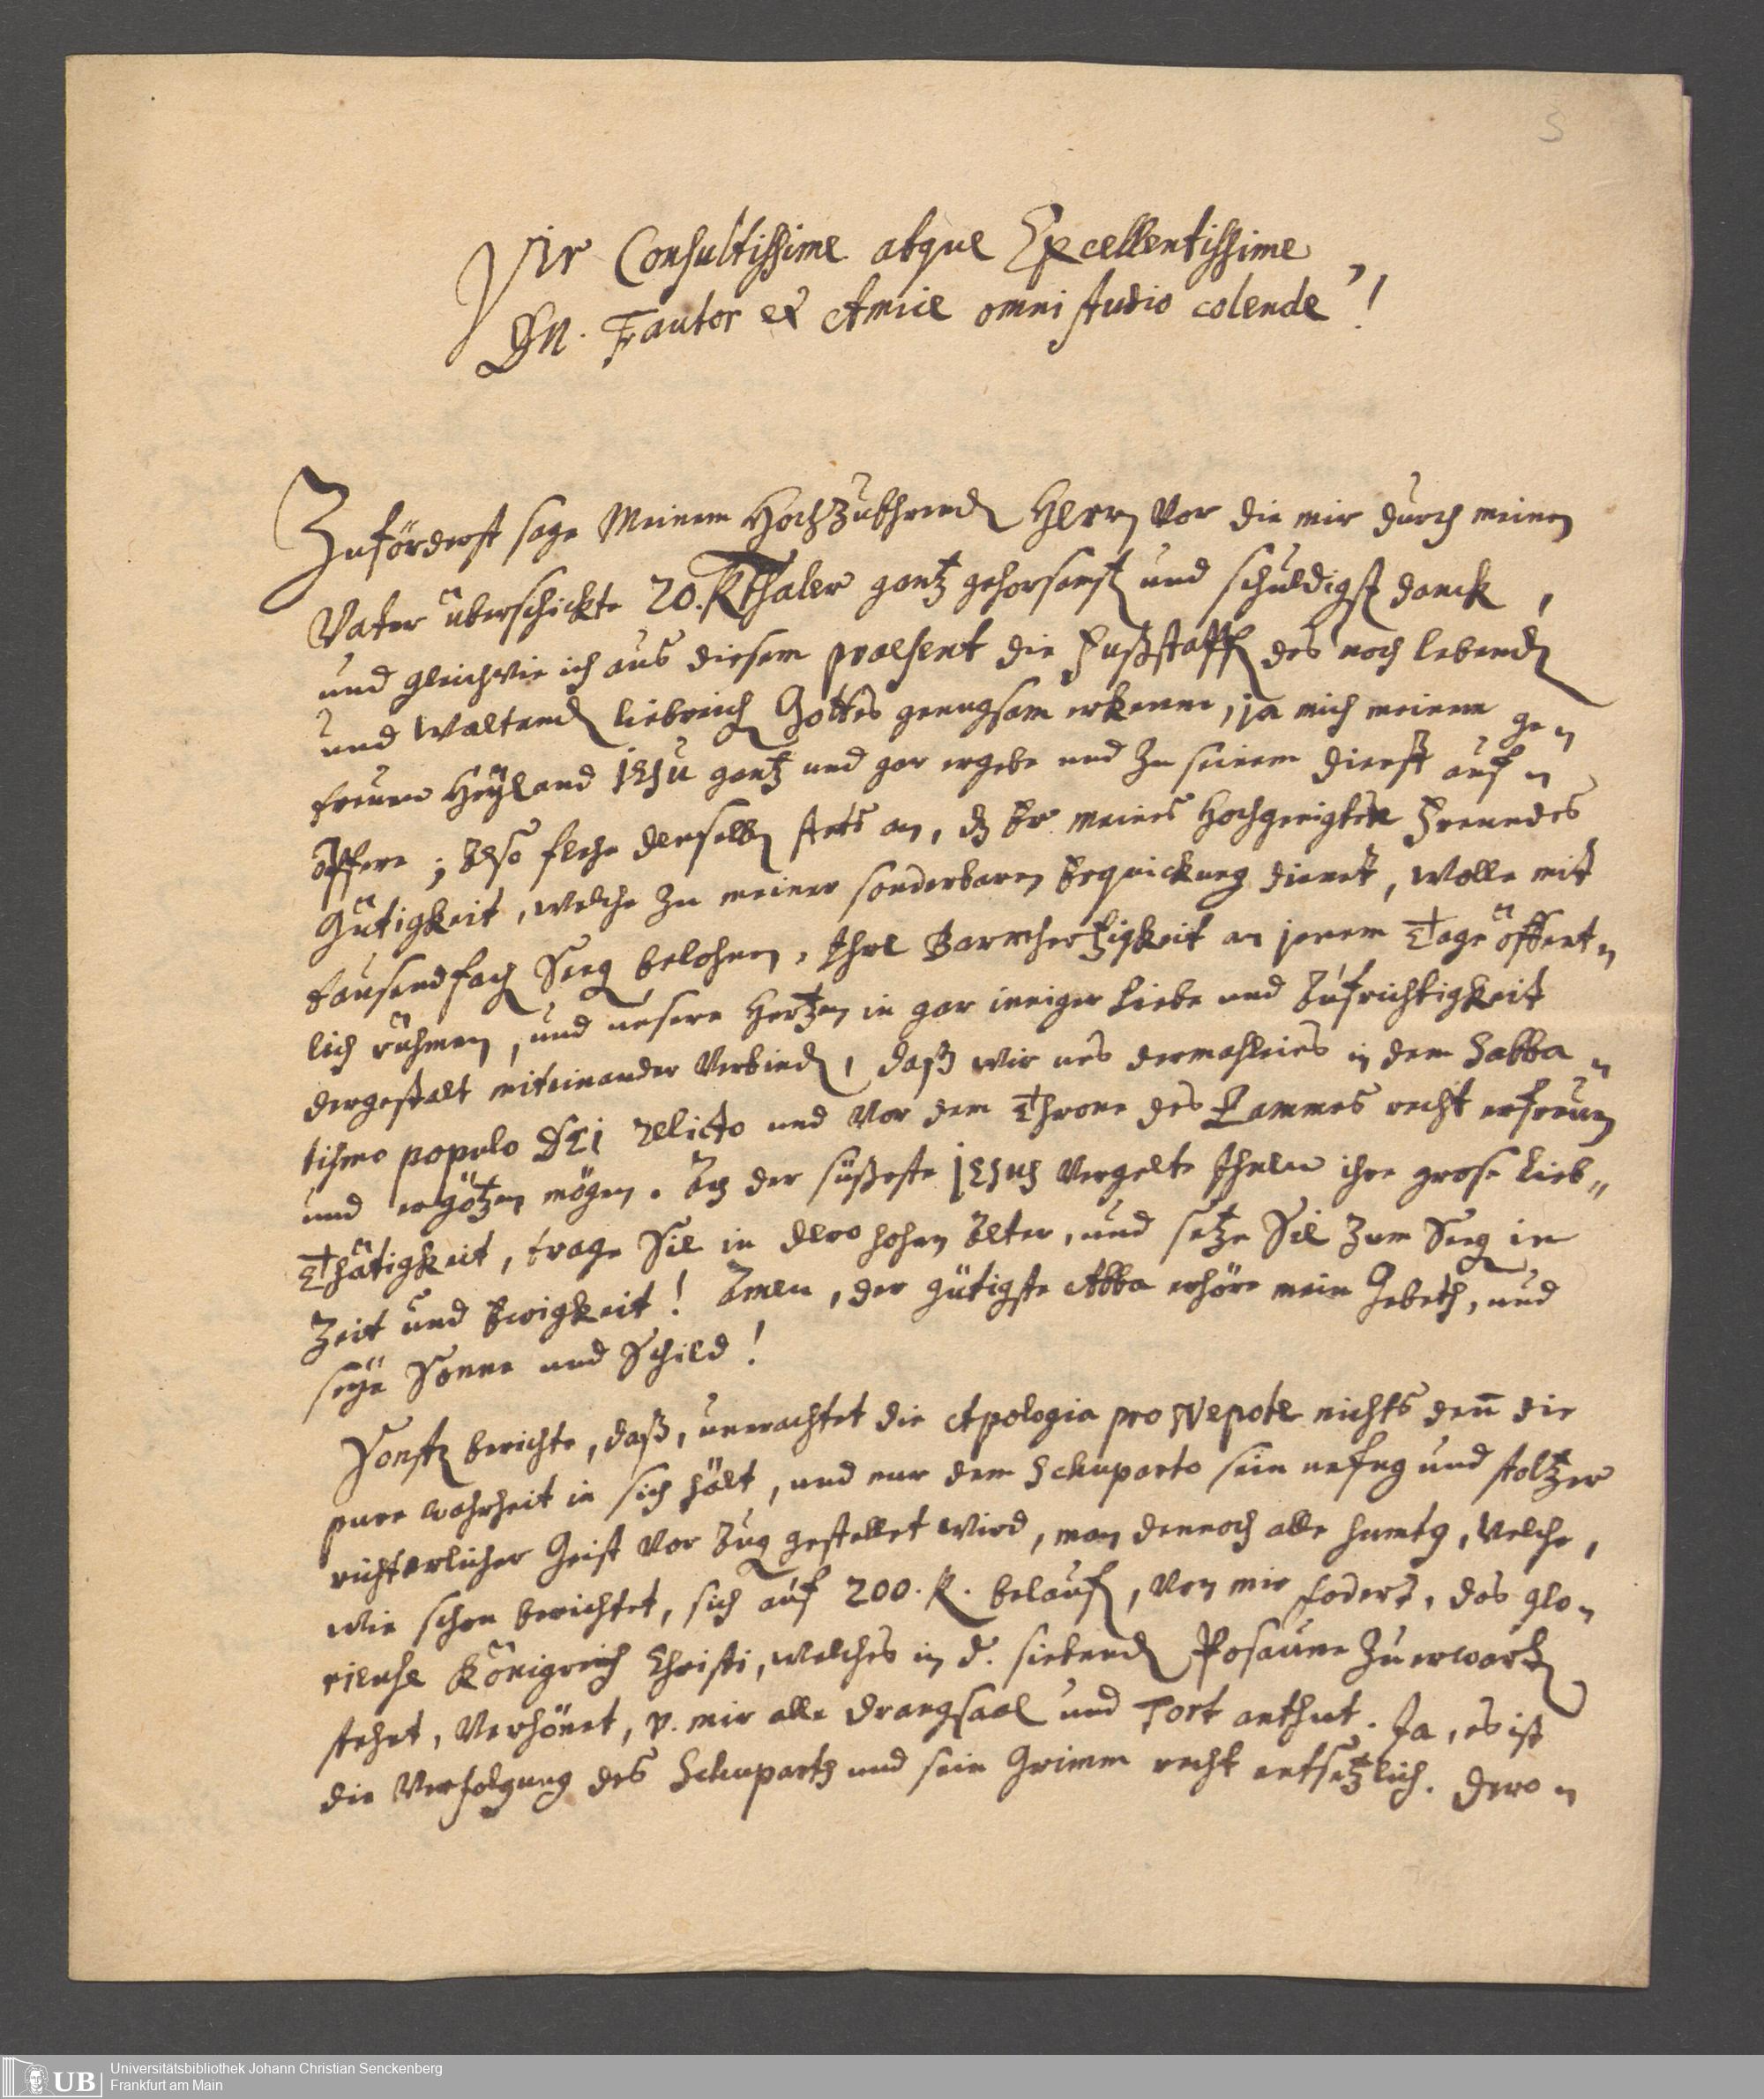 3
Vir Consultissime atque Excellentissime,
Dn. Fautor et Amice omni studio colende!
Zuförderst sage Meinem HochzuEhrend Herrn vor die mir durch meinen
Vater überschickte 20. RThaler gantz gehorsamst und schuldigst danck,
und gleichwie ich aus diesem praesent die Fußstapff des noch lebend
und waltend liebreich Gottes genugsam erkenne, ja mich meinem ge„
treuen Heyland JESU gantz und gar ergebe und zu seinem dienst auf„
opffere; Also flehe denselben stets an, dz Er meines Hochgeneigtste Freundes
Gütigkeit, welche zu meiner sonderbaren Erquickung dienet, wolle mit
tausendfach Seeg belohnen, Ihre Barmhertzigkeit an jenem Tage öffent„
lich rühmen, und unsere Hertzen in gar inniger Liebe und Aufrichtigkeit
dergestalt miteinander verbind, daß wir uns dermahleins in dem Sabba„
tismo populo DEi relicto und vor dem Throne des Lammes recht erfreuen
und ergötzen mögen. Ach der süßeste JESUS vergelte Ihnen ihre grose Lieb„
Thätigkeit, trage Sie in dero hohen Alter, und setze Sie zum Seeg in
Zeit und Ewigkeit! Amen, der gütigste Abba erhöre mein Gebeth, und
seye Sonne und Schild!
Sonst berichte, daß, unerachtet die Apologia pro Nepote nichts den̄ die
pure wahrheit in sich hält, und nur dem Schuparto sein unfug und stoltzer
richterlicher Geist vor Aug gestellet wird, man dennoch alle sumtg, welche,
wie schon berichtet, sich auf 200. R. belauff, von mir fodert, das glo„
rieuse Königreich Christi, welches in d. siebend Posaune zu erwart
stehet, verhönet, v. mir alle drangsaal und Tort anthut. Ja, es ist
die Verfolgung des Schuparts und sein Grimm recht entsetzlich. Dero„
UB Universitätsbibliothek Johann Christian Senckenberg
Frankfurt am Main